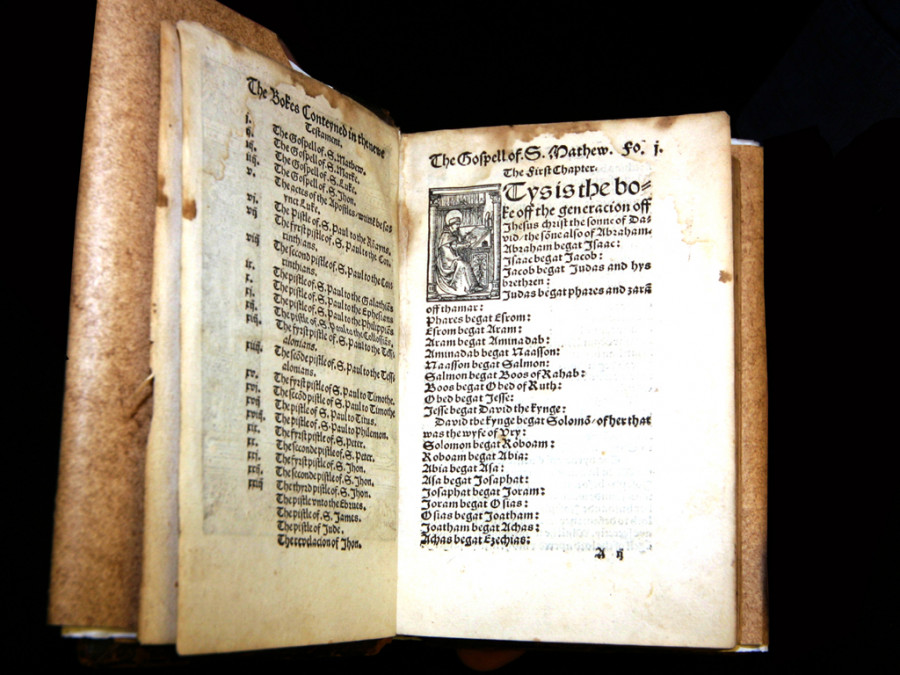 The Bokes Conteyned in the newe
Testament.
j. The Gospell of. S. Mathew.
ij. The Gospell of. S. Marke.
iij. The Gospell of. S. Luke.
iiij. The Gospell of. S. Jhon.
v. The actes of the Apostles
ynct Luke.
vi. The Pistle of. S. Paul to the
vij The fyrst pistle of. S. Paul to the Cor-
rinthians.
viij The second pistle of. S. Paul to the Cor-
rinthians.
ix. The pistle of. S. Paul to the Galathians
x. The pistle of. S. Paul to the Ephesians
xj. The pistle of. S. Paul to the Philippians
xij. The pistle of. S. Paul to the Collossians.
xiij. The fyrst pistle of. S. Paul to the Tessa
alonians.
xiiij. The secōde pistle of. S. Paul to the Tessa
alonians.
xv. The fyrst pistle of. S. Paul to Timothe.
xvi. The secōd pistle of. S. Paul to Timothe
xvij The pistle of. S. Paul to Titus.
xviij. The pistle of. S. Paul to Philemon.
xix. The fyrst pistle of. S. Peter.
xx. The seconde pistle of. S. Peter.
xxj. The fyrst pistle of. S. Jhon.
xxij. The seconde pistle of. S. Jhon.
xxiij The thyrd pistle of. S. Jhon.
The pistle vnto the Ebrues.
The pistle of. S. James.
The pistle of Jude.
The revelacion of Jhon.
The Gospell of. S. Mathew. Fo. j.
The First Chapter.
Tys is the bo=
ke off the generacion off
Jhesus christ the sonne of Da-
vid/ the sōne also of Abraham.
Abraham begat Jsaac:
Jsaac begat Jacob:
Jacob begat Judas and hys
brethren:
Judas begat phares and zarā
off thamar:
Phares begat Esrom:
Esrom begat Aram:
Aram begat Aminadab:
Aminadab begat Naasson:
Naasson begat Salmon:
Salmon begat Boos of Rahab:
Boos begat Obed of Ruth:
Obed begat Jesse:
Jesse begat David the kynge:
David the kynge begat Solomō/ of her that
was the wyfe of Vry:
Solomon begat Roboam:
Roboam begat Abia:
Abia begat Asa:
Asa begat Josaphat:
Josaphat begat Joram:
Joram begat Osias:
Osias begat Joatham:
Joatham begat Achas:
Achas begat Ezechias:
A ij